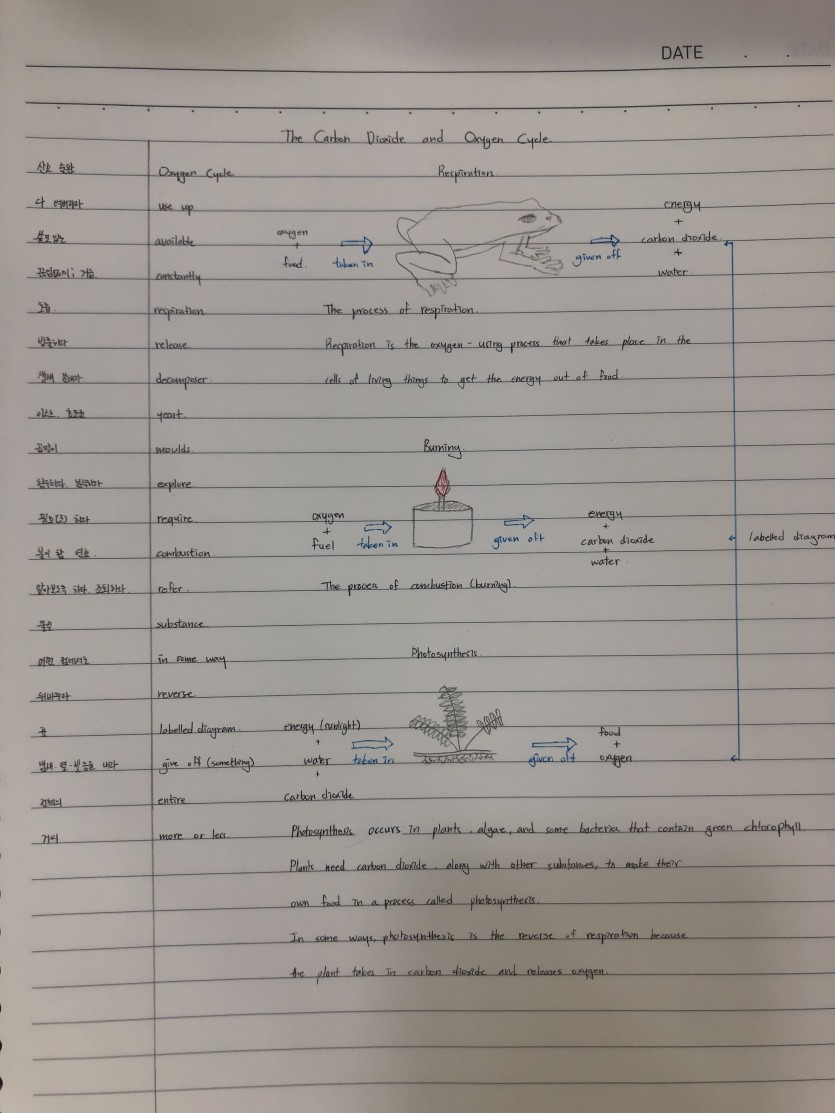 DATE . .
The Carbon Dioxide and Oxygen Cycle
산소 순환 Oxygen Cycle Respiration
다 써버리다 use up energy
+
available oxygen carbon dioxide
+ +
끊임없이; 거듭 constantly food taken in given off water
호흡 respiration The process of respiration.
방출하다 release Respiration is the oxygen-using process that takes place in the
생태 분해자 decomposer cells of living things to get the energy out of food.
이스트, 효모균 yeast
곰팡이 moulds Burning
explore
필요(로) 하다 require oxygen energy
+ +
fuel taken in given off carbon dioxide labelled diagram
+
불이 탐 연소 combustion water
refer The process of combustion (burning).
물질 substance
어떤 점에서는 in some way Photosynthesis
뒤바꾸다 reverse
labelled diagram energy (sunlight) food
+ +
냄새·열·빛 등을 내다 give off (something) water taken in given off oxygen
+
전체의 entire carbon dioxide
거의 more or less Photosynthesis occurs in plants, algae, and some bacteria that contain green chlorophyll
Plants need carbon dioxide, along with other substances, to make their
own food in a process called photosynthesis.
In some ways, photosynthesis is the reverse of respiration because
the plant takes in carbon dioxide and releases oxygen.